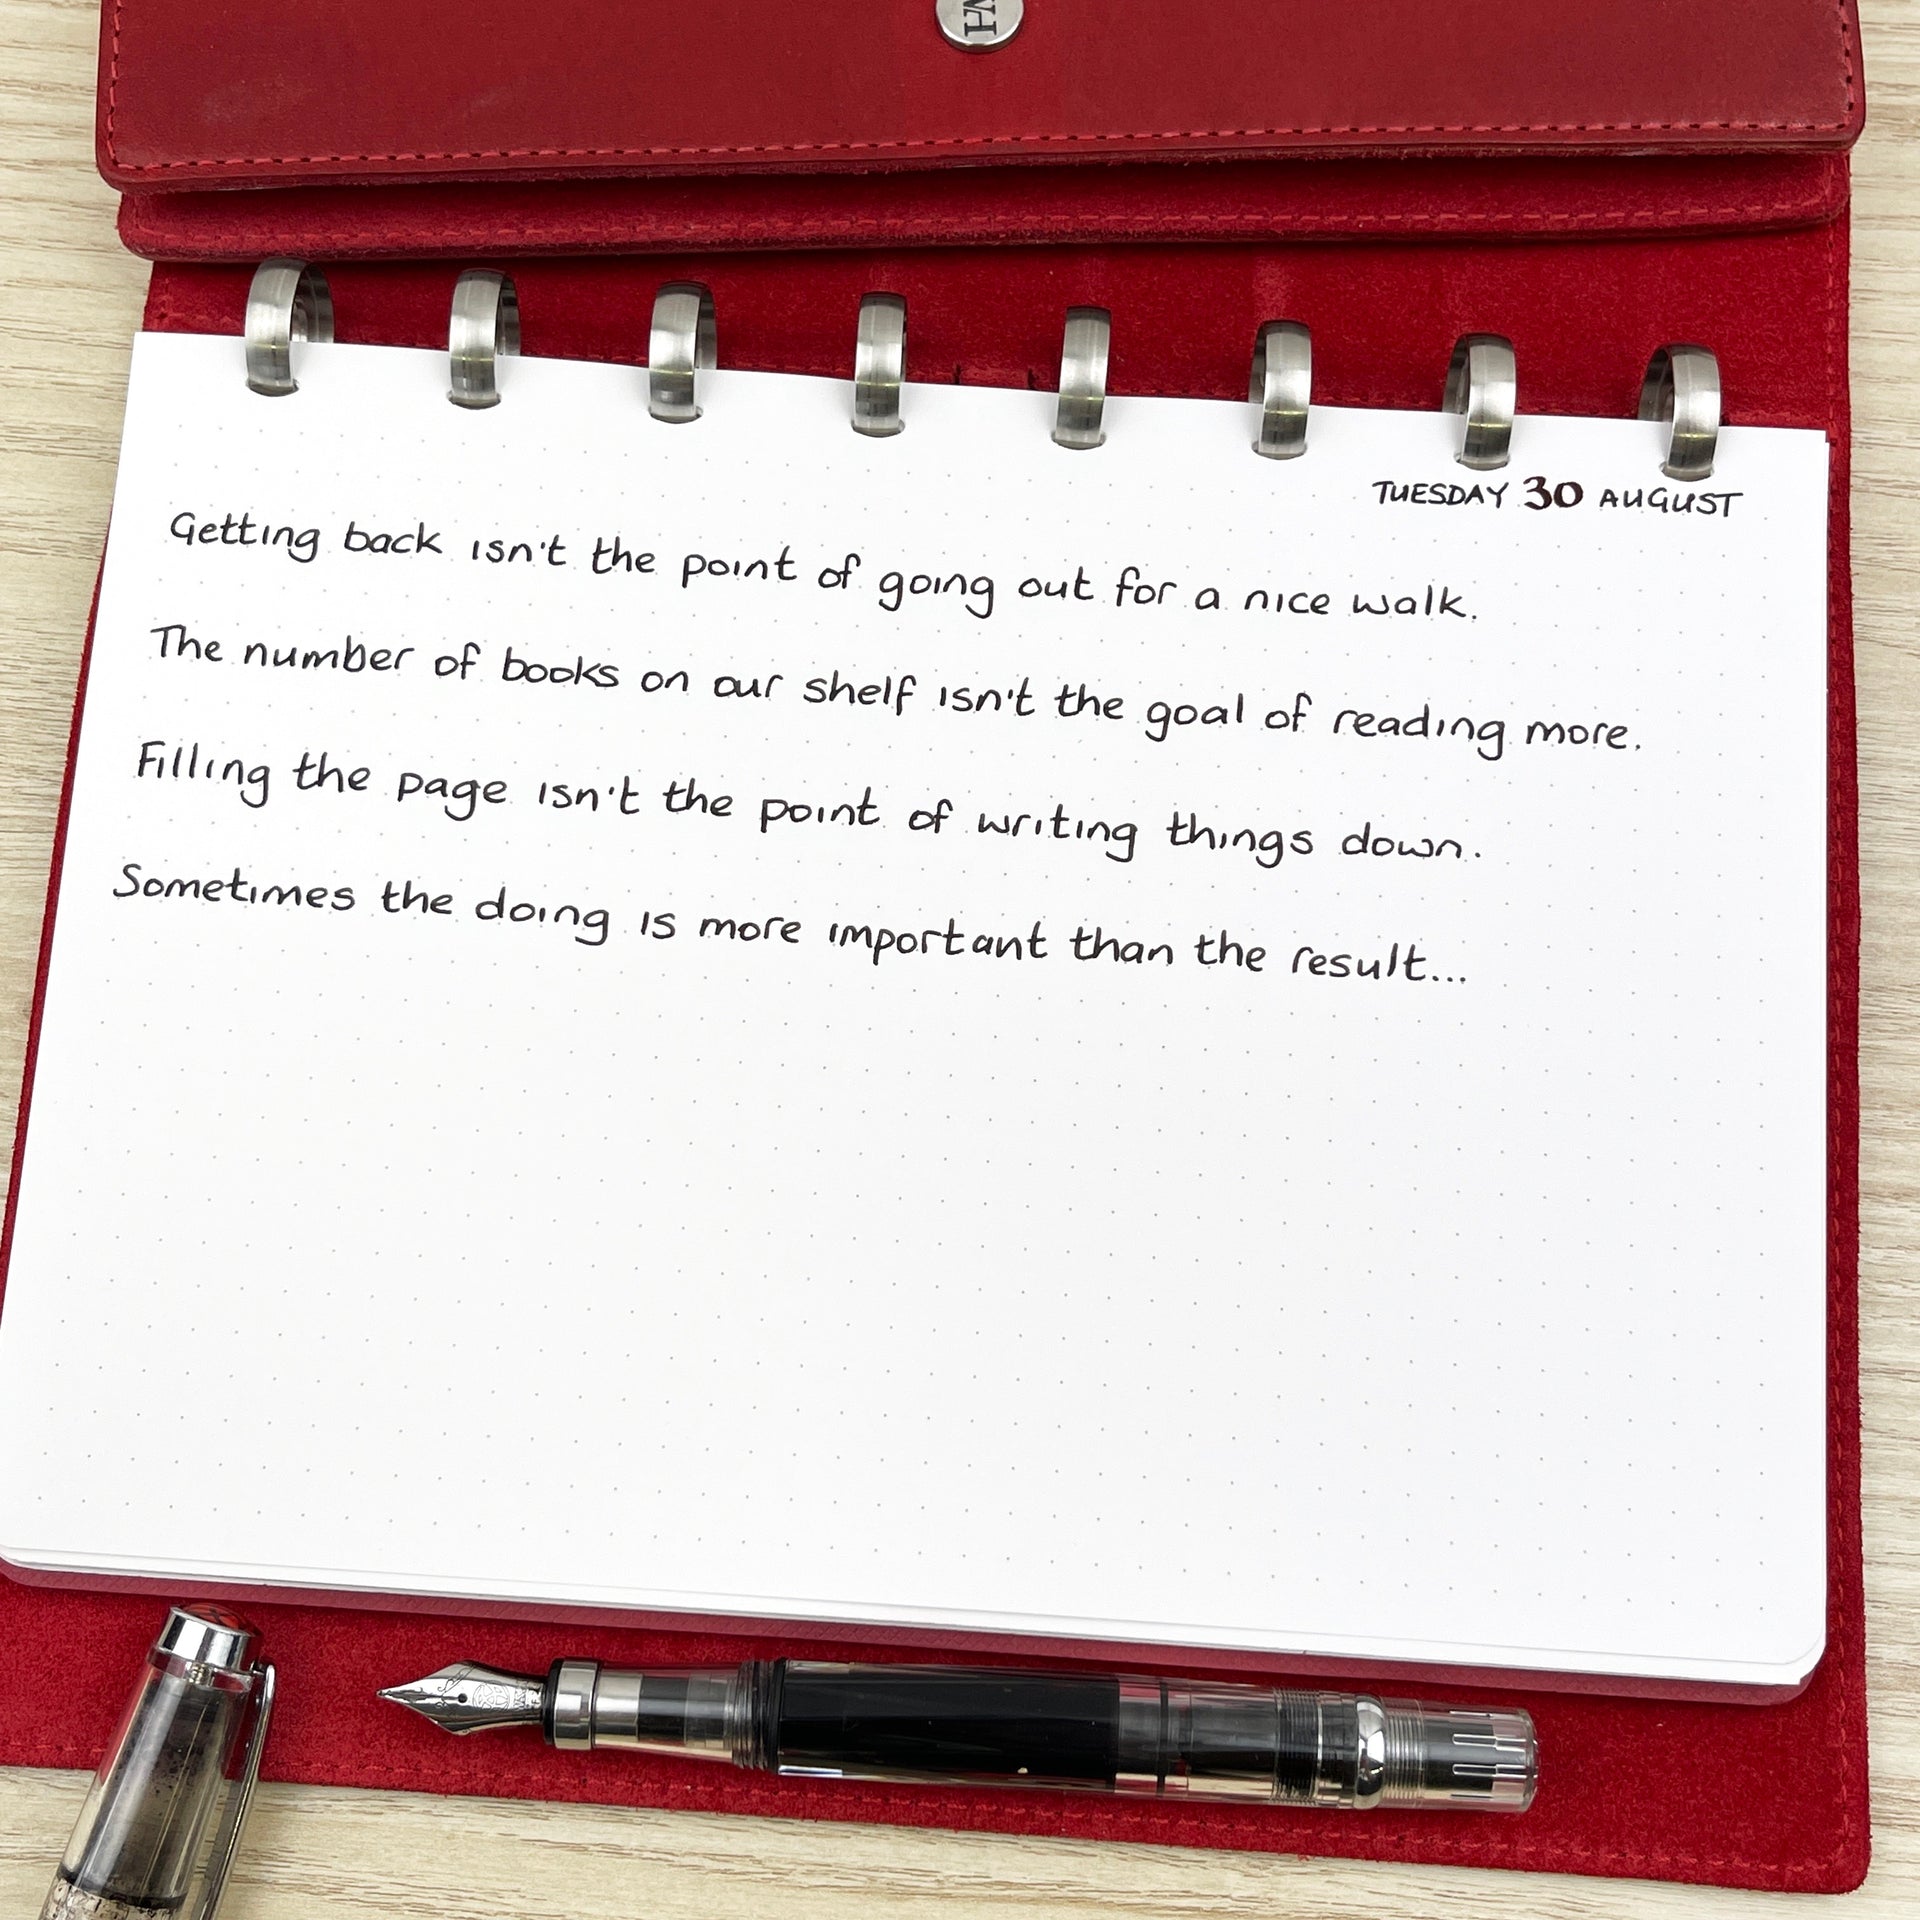 WH
TUESDAY 30 AUGUST
Getting back isn't the point of going out for a nice walk.
The number of books on our shelf isn't the goal of reading more.
Filling the page isn't the point of writing things down.
Sometimes the doing is more important than the result...